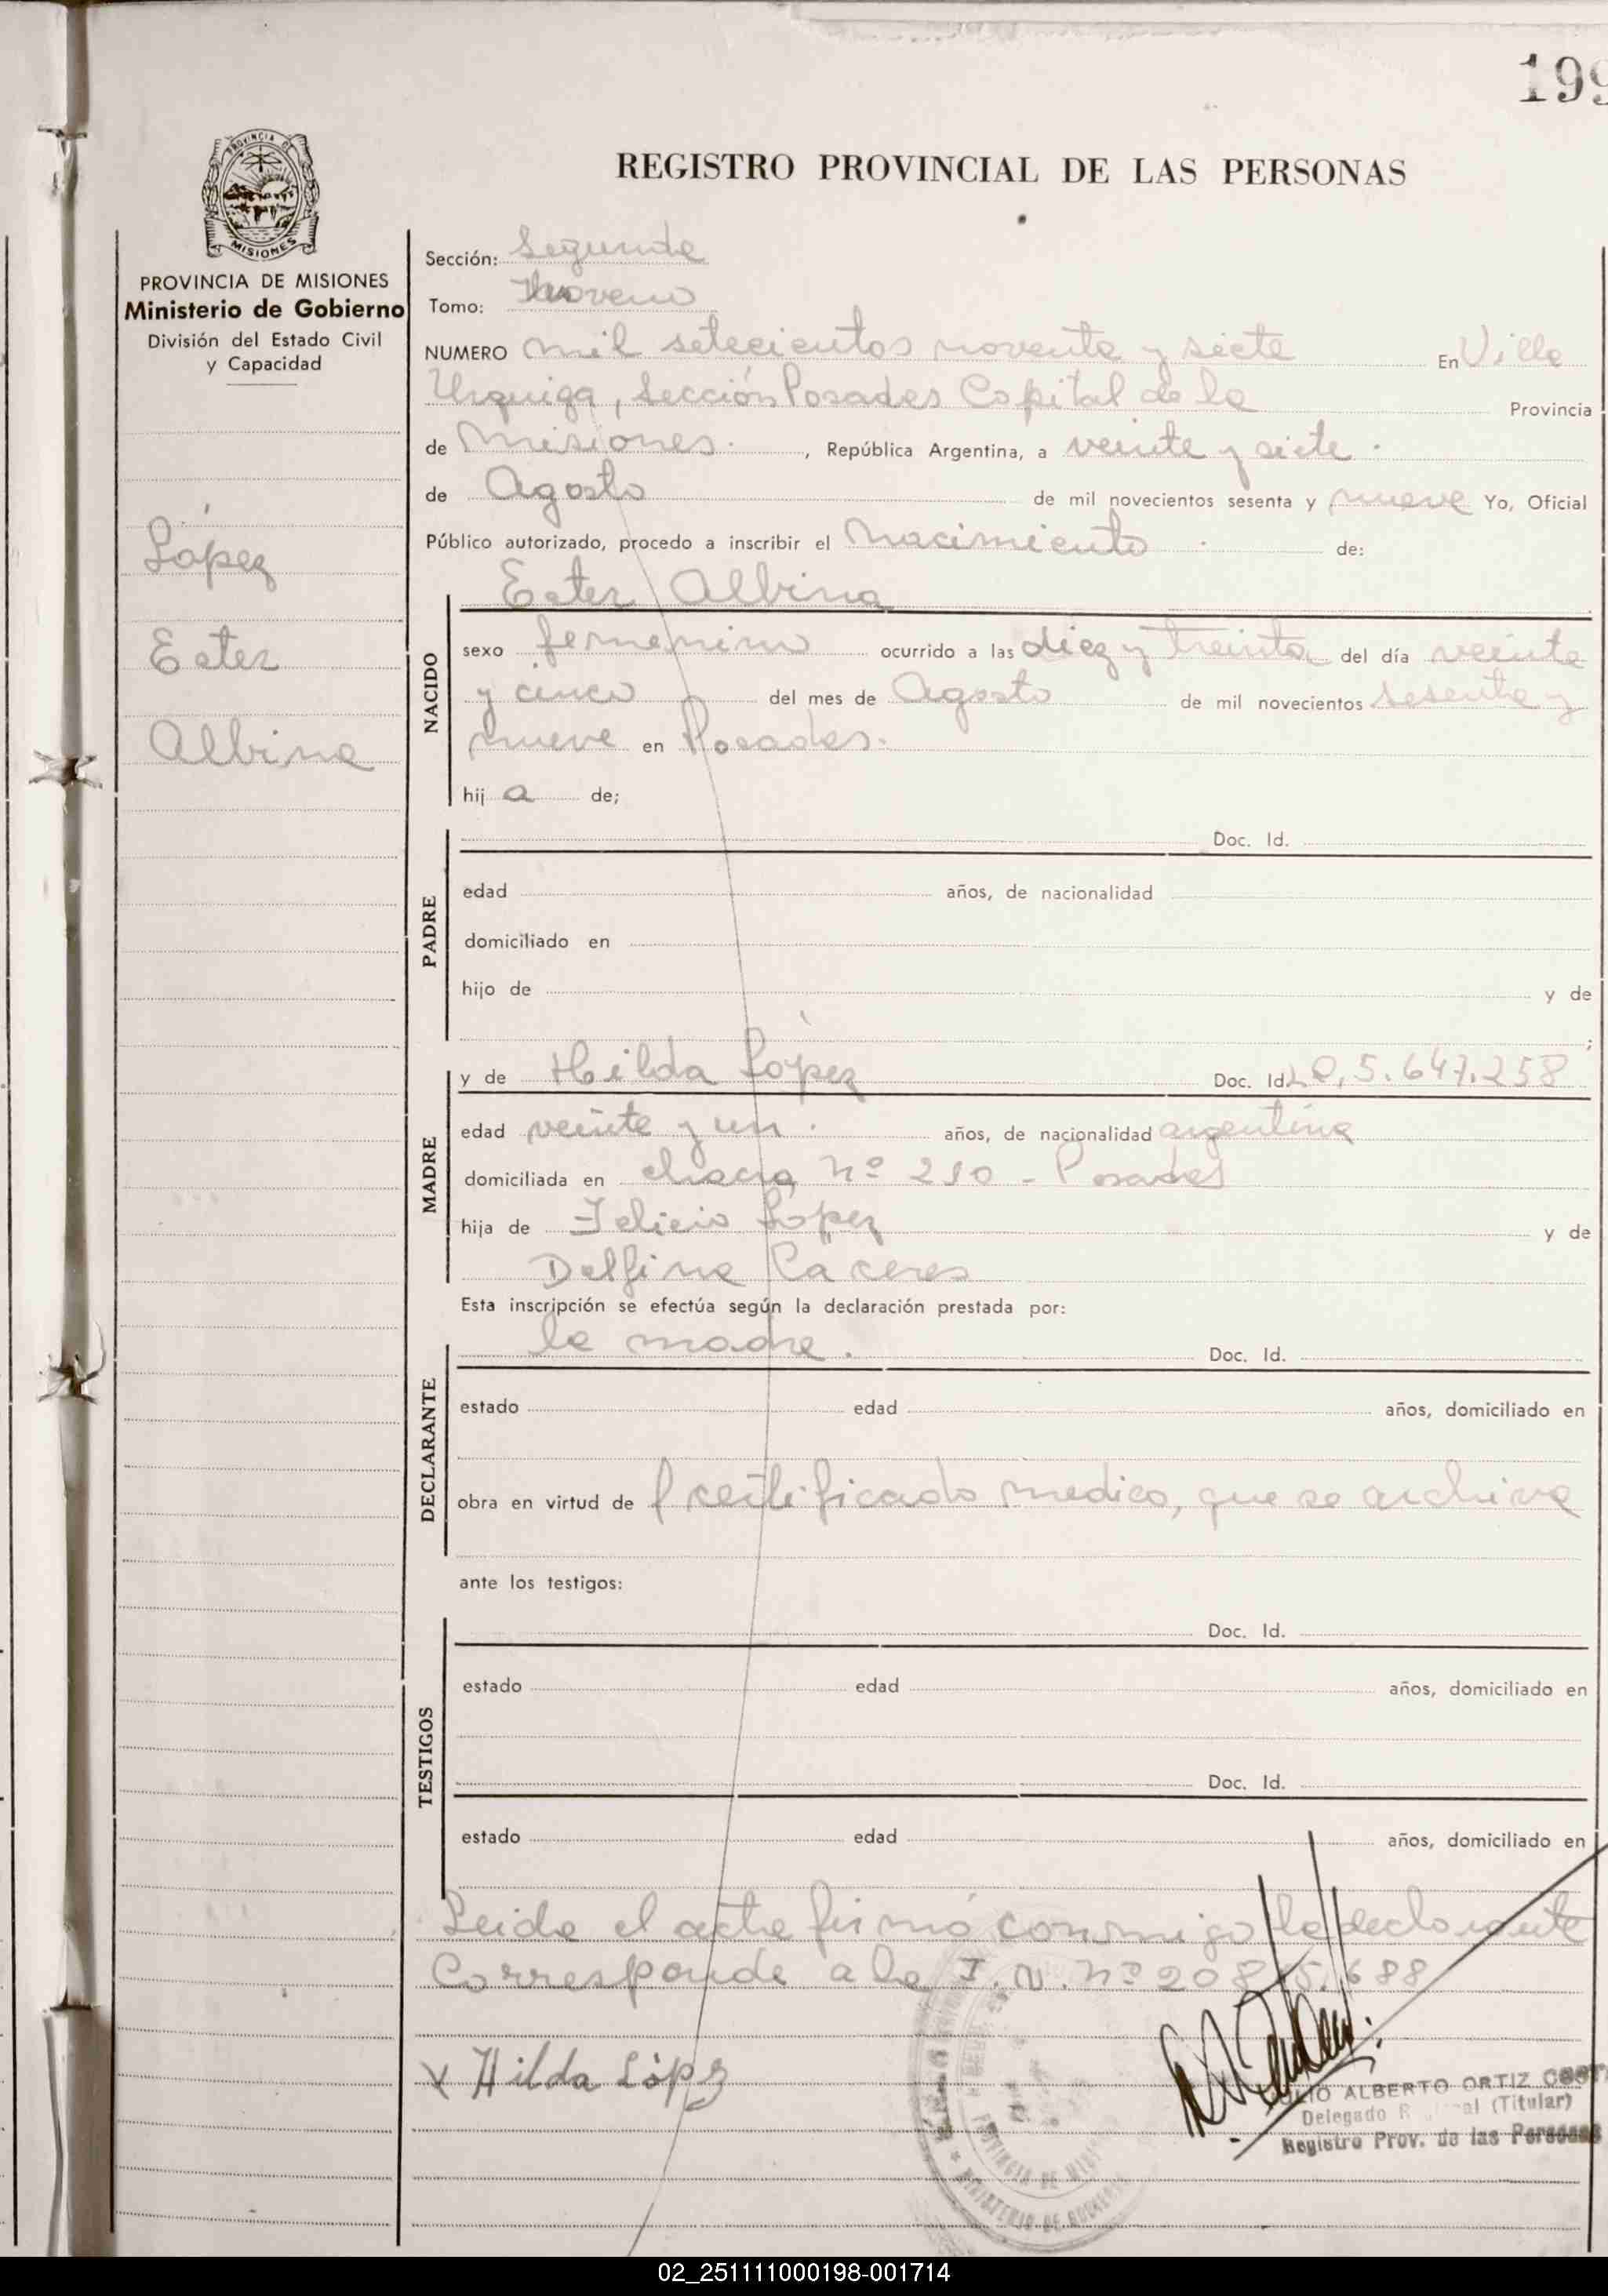 199
PROVINCIA DE
MISIONES
REGISTRO PROVINCIAL DE LAS PERSONAS
PROVINCIA DE MISIONES
Ministerio de Gobierno
División del Estado Civil
y Capacidad
López
Ester
Albina
Sección: Segunda
Tomo: Noveno
NUMERO mil setecientos noventa y siete En Villa
Urquiza, Sección Posadas Capital de la Provincia
de Misiones. , República Argentina, a veinte y siete.
de Agosto de mil novecientos sesenta y nueve Yo, Oficial
Público autorizado, procedo a inscribir el Nacimiento de:
Ester Albina
NACIDO
sexo femenino ocurrido a las diez y treinta del día veinte
y cinco del mes de Agosto de mil novecientos sesenta y
nueve en Posadas.
hij a de;
Doc. Id.
PADRE
edad años, de nacionalidad
domiciliado en
hijo de y de
;
MADRE
y de Hilda López Doc. Id. 5.647.258
edad veinte y un. años, de nacionalidad argentina
domiciliada en chacra nº 210 - Posadas
hija de Felicio López y de
Delfina Caceres
Esta inscripción se efectúa según la declaración prestada por:
la madre. Doc. Id.
DECLARANTE
estado edad años, domiciliado en
obra en virtud de certificado medico, que se archiva
ante los testigos:
Doc. Id.
TESTIGOS
estado edad años, domiciliado en
Doc. Id.
estado edad años, domiciliado en
Leida el acta firmó conmigo la declarante
Corresponde a la I. N. nº 20.8 5.688
x Hilda Lópz
PROVINCIA DE
MINISTERIO DE GOBIERNO
ALBERTO ORTIZ
Delegado (Titular)
Registro Prov. de las Personas
02_251111000198-001714